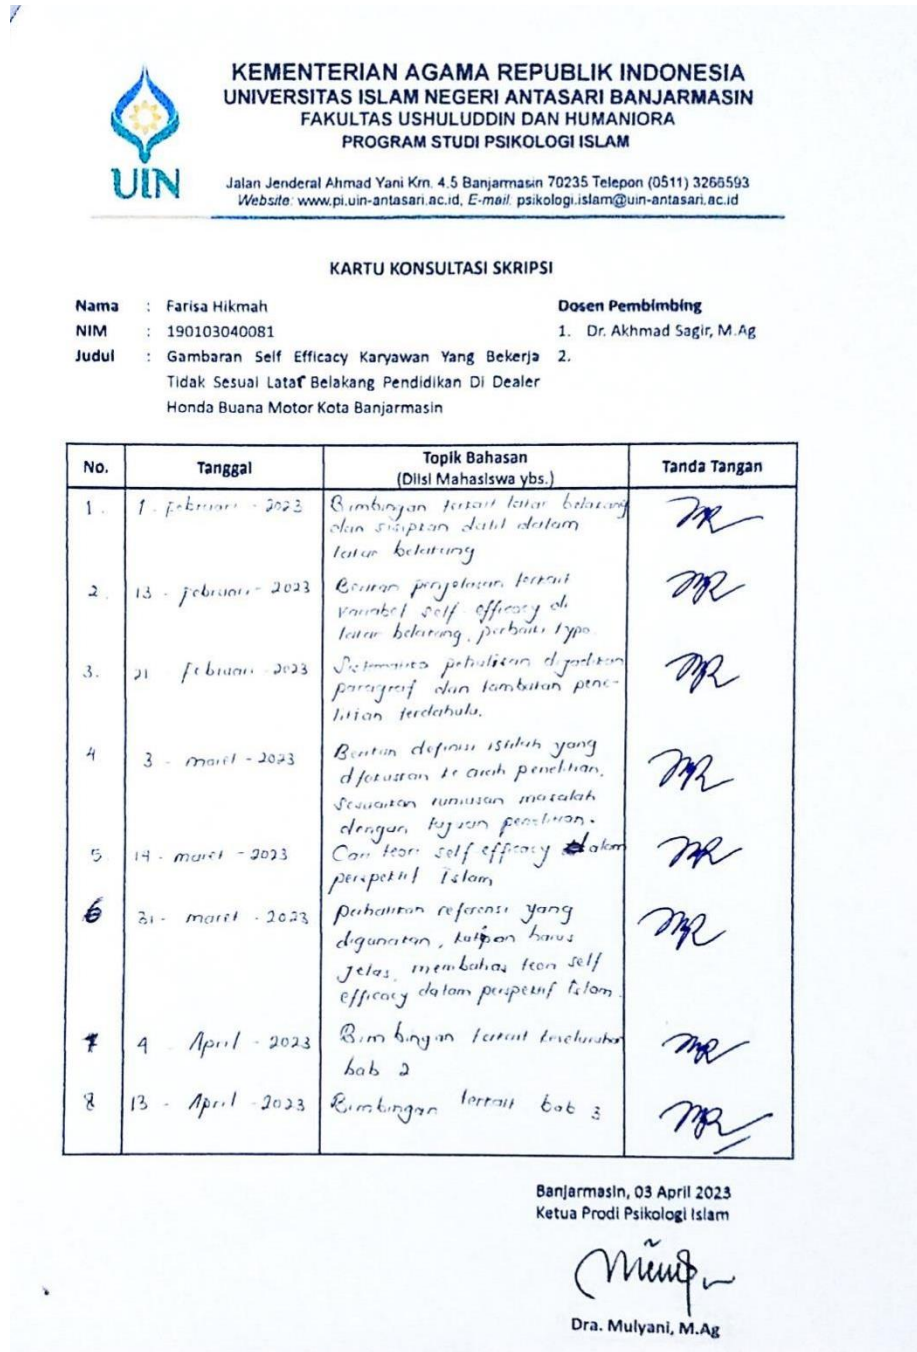 KEMENTERIAN AGAMA REPUBLIK INDONESIA
UNIVERSITAS ISLAM NEGERI ANTASARI BANJARMASIN
FAKULTAS USHULUDDIN DAN HUMANIORA
PROGRAM STUDI PSIKOLOGI ISLAM
UIN
Jalan Jenderal Ahmad Yani Km. 4.5 Banjarmasin 70235 Telepon (0511) 3266593
Website: www.pi.uin-antasari.ac.id, E-mail: psikologi.islam@uin-antasari.ac.id
KARTU KONSULTASI SKRIPSI
Nama : Farisa Hikmah
NIM : 190103040081
Judul : Gambaran Self Efficacy Karyawan Yang Bekerja
Tidak Sesuai Latar Belakang Pendidikan Di Dealer
Honda Buana Motor Kota Banjarmasin
Dosen Pembimbing
1. Dr. Akhmad Sagir, M.Ag
2.
No. Tanggal Topik Bahasan Tanda Tangan
(Diisi Mahasiswa ybs.)
1. 1 - Februari - 2023 Bimbingan terkait latar belakang
dan sisipkan dalil dalam
latar belakang
2. 13 - Februari - 2023 penjelasan terkait
variabel self efficacy di
latar belakang, perbaiki typo.
3. 21 Februari - 2023 Sistematika penulisan dijadikan
paragraf dan tambahkan pene-
litian terdahulu.
4 3 - maret - 2023 definisi istilah yang
difokuskan ke arah penelitian,
sesuaikan rumusan masalah
dengan tujuan penelitian.
5. 14 - maret - 2023 Cari teori self efficacy dalam
perspektif Islam
6 31 - maret - 2023 perhatikan referensi yang
digunakan, kutipan harus
jelas, membahas teori self
efficacy dalam perspektif Islam.
7 4 - April - 2023 Bimbingan terkait keseluruhan
bab 2
8 13 - April - 2023 Bimbingan terkait bab 3
Banjarmasin, 03 April 2023
Ketua Prodi Psikologi Islam
Dra. Mulyani, M.Ag